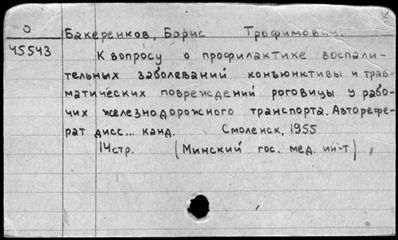 О
45543
Бакеренков, Борис Трофимович.
К вопросу о профилактике воспали-
тельных заболеваний конъюнктивы и трав-
матических повреждений роговицы у рабо-
чих железнодорожного транспорта. Авторефе-
рат дисс... канд. Смоленск, 1955
14стр. (Минский гос. мед. ин-т)